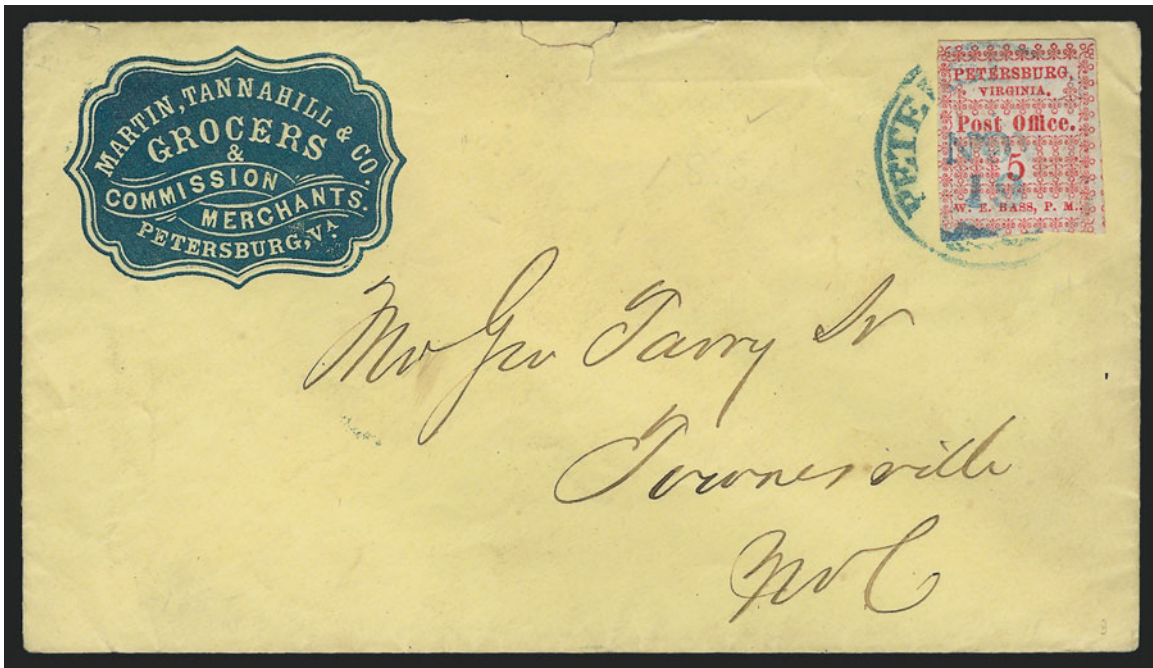 MARTIN, TANNAHILL & CO.
GROCERS
&
COMMISSION
MERCHANTS.
PETERSBURG, VA.
PETE
PETERSBURG,
VIRGINIA.
Post Office.
NOV
5
19
W. E. BASS, P. M.
Mr Geo Tarry Sr
Townesville
No C